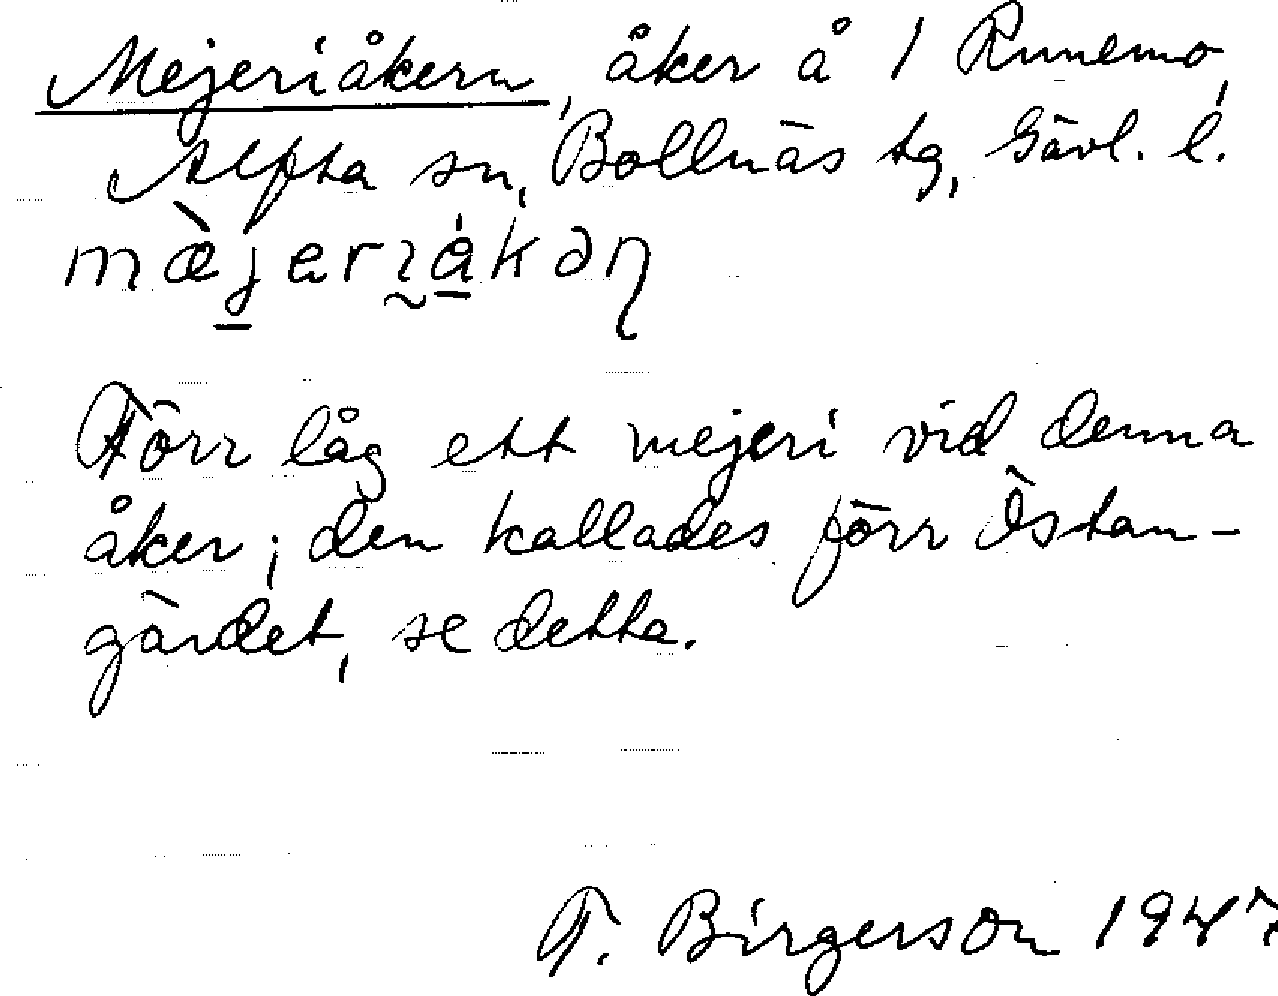 Mejeriåkern, åker å 1 Runemo,
Alfta sn, Bollnäs tg, Gävl. l.
mæ̀jerıákəɳ
Förr låg ett mejeri vid denna
åker; den kallades förr Östan-
gärdet, se detta.
F. Birgerson 1947